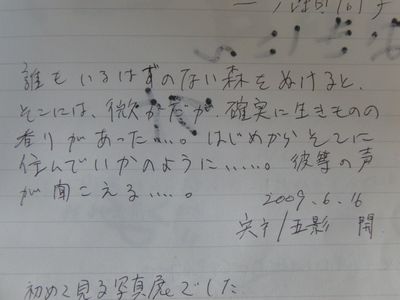 誰もいるはずのない森をぬけると、
そこには、微かだが、確実に生きものの
香りがあった‥‥。はじめからそこに
住んでいかのように‥‥‥。彼等の声
が聞こえる‥‥。
2009.6.16
初めて見る写真展でした